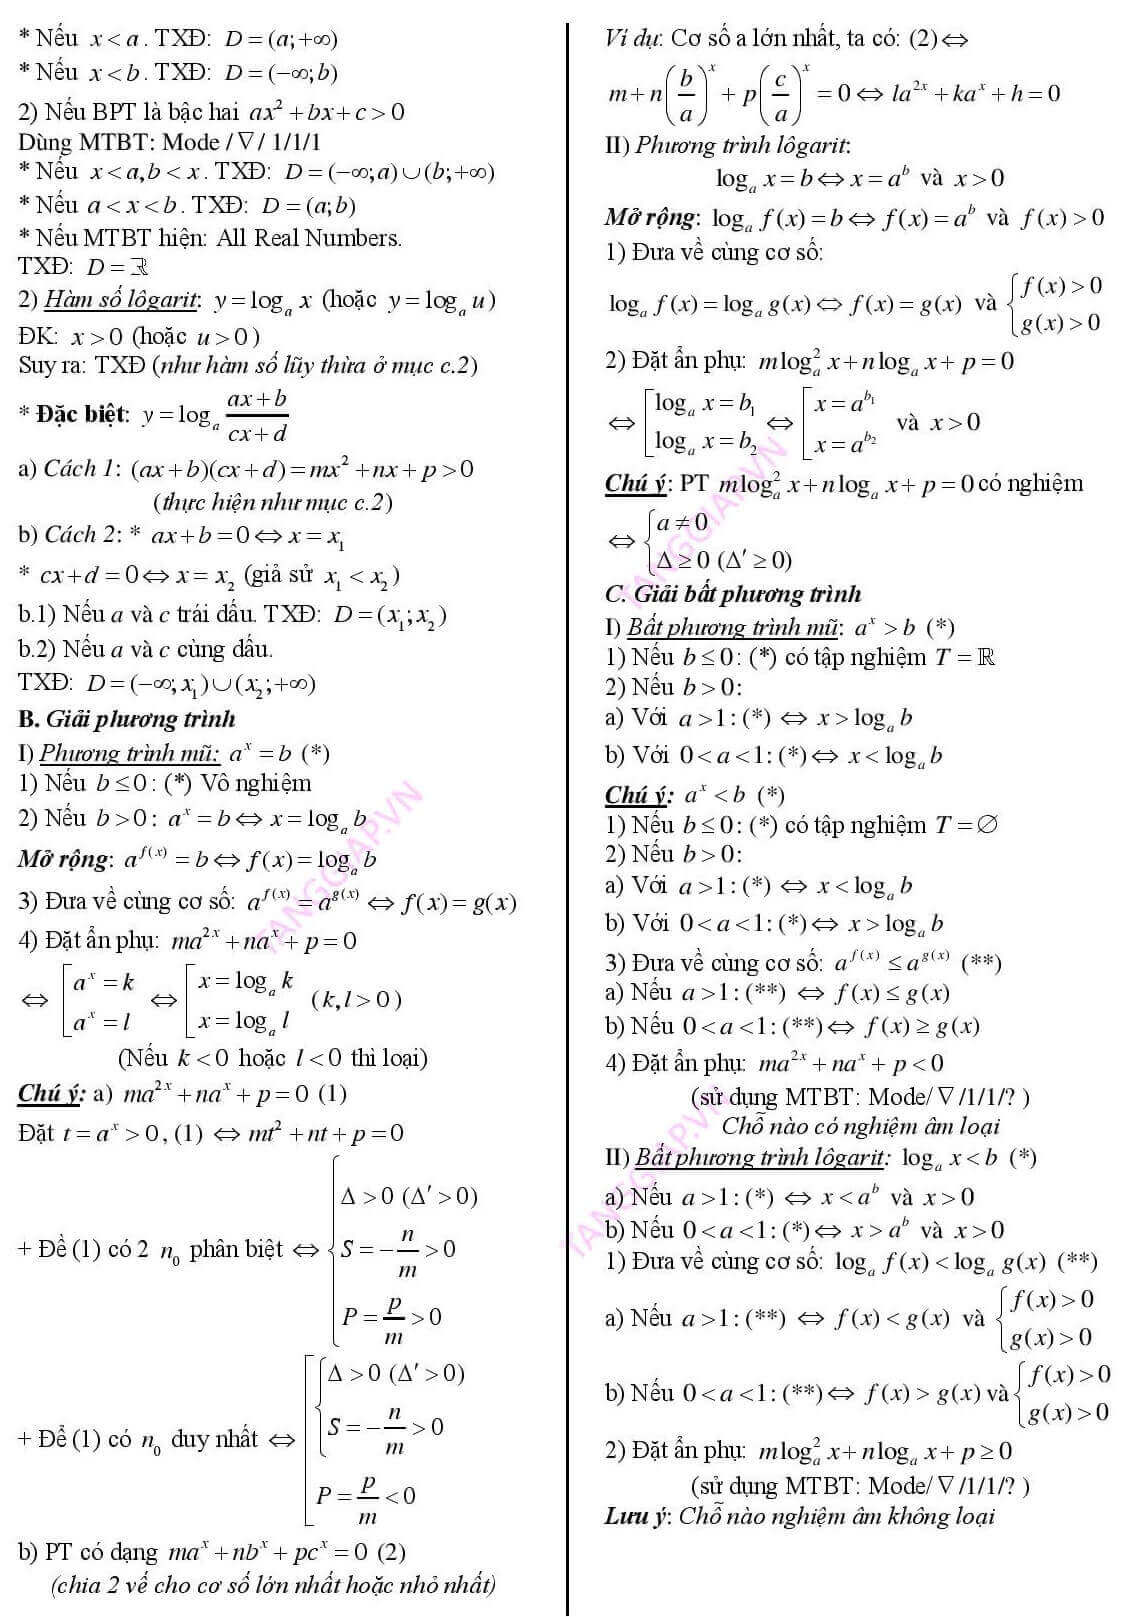 * Nếu x < a. TXĐ: D = (a; +∞)
* Nếu x < b. TXĐ: D = (−∞; b)
2) Nếu BPT là bậc hai ax² + bx + c > 0
Dùng MTBT: Mode / ∇ / 1/1/1
* Nếu x < a, b < x. TXĐ: D = (−∞; a) ∪ (b; +∞)
* Nếu a < x < b. TXĐ: D = (a; b)
* Nếu MTBT hiện: All Real Numbers.
TXĐ: D = ℝ
2) Hàm số lôgarit: y = logₐ x (hoặc y = logₐ u)
ĐK: x > 0 (hoặc u > 0)
Suy ra: TXĐ (như hàm số lũy thừa ở mục c.2)
* Đặc biệt: y = logₐ (ax + b)/(cx + d)
a) Cách 1: (ax + b)(cx + d) = mx² + nx + p > 0
(thực hiện như mục c.2)
b) Cách 2: * ax + b = 0 ⇔ x = x₁
* cx + d = 0 ⇔ x = x₂ (giả sử x₁ < x₂)
b.1) Nếu a và c trái dấu. TXĐ: D = (x₁; x₂)
b.2) Nếu a và c cùng dấu.
TXĐ: D = (−∞; x₁) ∪ (x₂; +∞)
B. Giải phương trình
I) Phương trình mũ: a^x = b (*)
1) Nếu b ≤ 0: (*) Vô nghiệm
2) Nếu b > 0: a^x = b ⇔ x = logₐ b
Mở rộng: a^f(x) = b ⇔ f(x) = logₐ b
3) Đưa về cùng cơ số: a^f(x) = a^g(x) ⇔ f(x) = g(x)
4) Đặt ẩn phụ: ma^2x + na^x + p = 0
⇔ [ a^x = k ; a^x = l ⇔ [ x = logₐ k ; x = logₐ l (k, l > 0)
(Nếu k < 0 hoặc l < 0 thì loại)
Chú ý: a) ma^2x + na^x + p = 0 (1)
Đặt t = a^x > 0, (1) ⇔ mt² + nt + p = 0
+ Để (1) có 2 n₀ phân biệt ⇔ { Δ > 0 (Δ' > 0) ; S = −n/m > 0 ; P = p/m > 0
+ Để (1) có n₀ duy nhất ⇔ [ { Δ > 0 (Δ' > 0) ; S = −n/m > 0 ; P = p/m < 0
b) PT có dạng ma^x + nb^x + pc^x = 0 (2)
(chia 2 vế cho cơ số lớn nhất hoặc nhỏ nhất)
Ví dụ: Cơ số a lớn nhất, ta có: (2) ⇔
m + n(b/a)^x + p(c/a)^x = 0 ⇔ la^2x + ka^x + h = 0
II) Phương trình lôgarit:
logₐ x = b ⇔ x = a^b và x > 0
Mở rộng: logₐ f(x) = b ⇔ f(x) = a^b và f(x) > 0
1) Đưa về cùng cơ số:
logₐ f(x) = logₐ g(x) ⇔ f(x) = g(x) và { f(x) > 0 ; g(x) > 0
2) Đặt ẩn phụ: m logₐ² x + n logₐ x + p = 0
⇔ [ logₐ x = b₁ ; logₐ x = b₂ ⇔ [ x = a^b₁ ; x = a^b₂ và x > 0
Chú ý: PT m logₐ² x + n logₐ x + p = 0 có nghiệm
⇔ { a ≠ 0 ; Δ ≥ 0 (Δ' ≥ 0)
C. Giải bất phương trình
I) Bất phương trình mũ: a^x > b (*)
1) Nếu b ≤ 0: (*) có tập nghiệm T = ℝ
2) Nếu b > 0:
a) Với a > 1: (*) ⇔ x > logₐ b
b) Với 0 < a < 1: (*) ⇔ x < logₐ b
Chú ý: a^x < b (*)
1) Nếu b ≤ 0: (*) có tập nghiệm T = ∅
2) Nếu b > 0:
a) Với a > 1: (*) ⇔ x < logₐ b
b) Với 0 < a < 1: (*) ⇔ x > logₐ b
3) Đưa về cùng cơ số: a^f(x) ≤ a^g(x) (**)
a) Nếu a > 1: (**) ⇔ f(x) ≤ g(x)
b) Nếu 0 < a < 1: (**) ⇔ f(x) ≥ g(x)
4) Đặt ẩn phụ: ma^2x + na^x + p < 0
(sử dụng MTBT: Mode/ ∇ /1/1/? )
Chỗ nào có nghiệm âm loại
II) Bất phương trình lôgarit: logₐ x < b (*)
a) Nếu a > 1: (*) ⇔ x < a^b và x > 0
b) Nếu 0 < a < 1: (*) ⇔ x > a^b và x > 0
1) Đưa về cùng cơ số: logₐ f(x) < logₐ g(x) (**)
a) Nếu a > 1: (**) ⇔ f(x) < g(x) và { f(x) > 0 ; g(x) > 0
b) Nếu 0 < a < 1: (**) ⇔ f(x) > g(x) và { f(x) > 0 ; g(x) > 0
2) Đặt ẩn phụ: m logₐ² x + n logₐ x + p ≥ 0
(sử dụng MTBT: Mode/ ∇ /1/1/? )
Lưu ý: Chỗ nào nghiệm âm không loại
TANGGIAP.VN
TANGGIAP.VN
TANGGIAP.VN